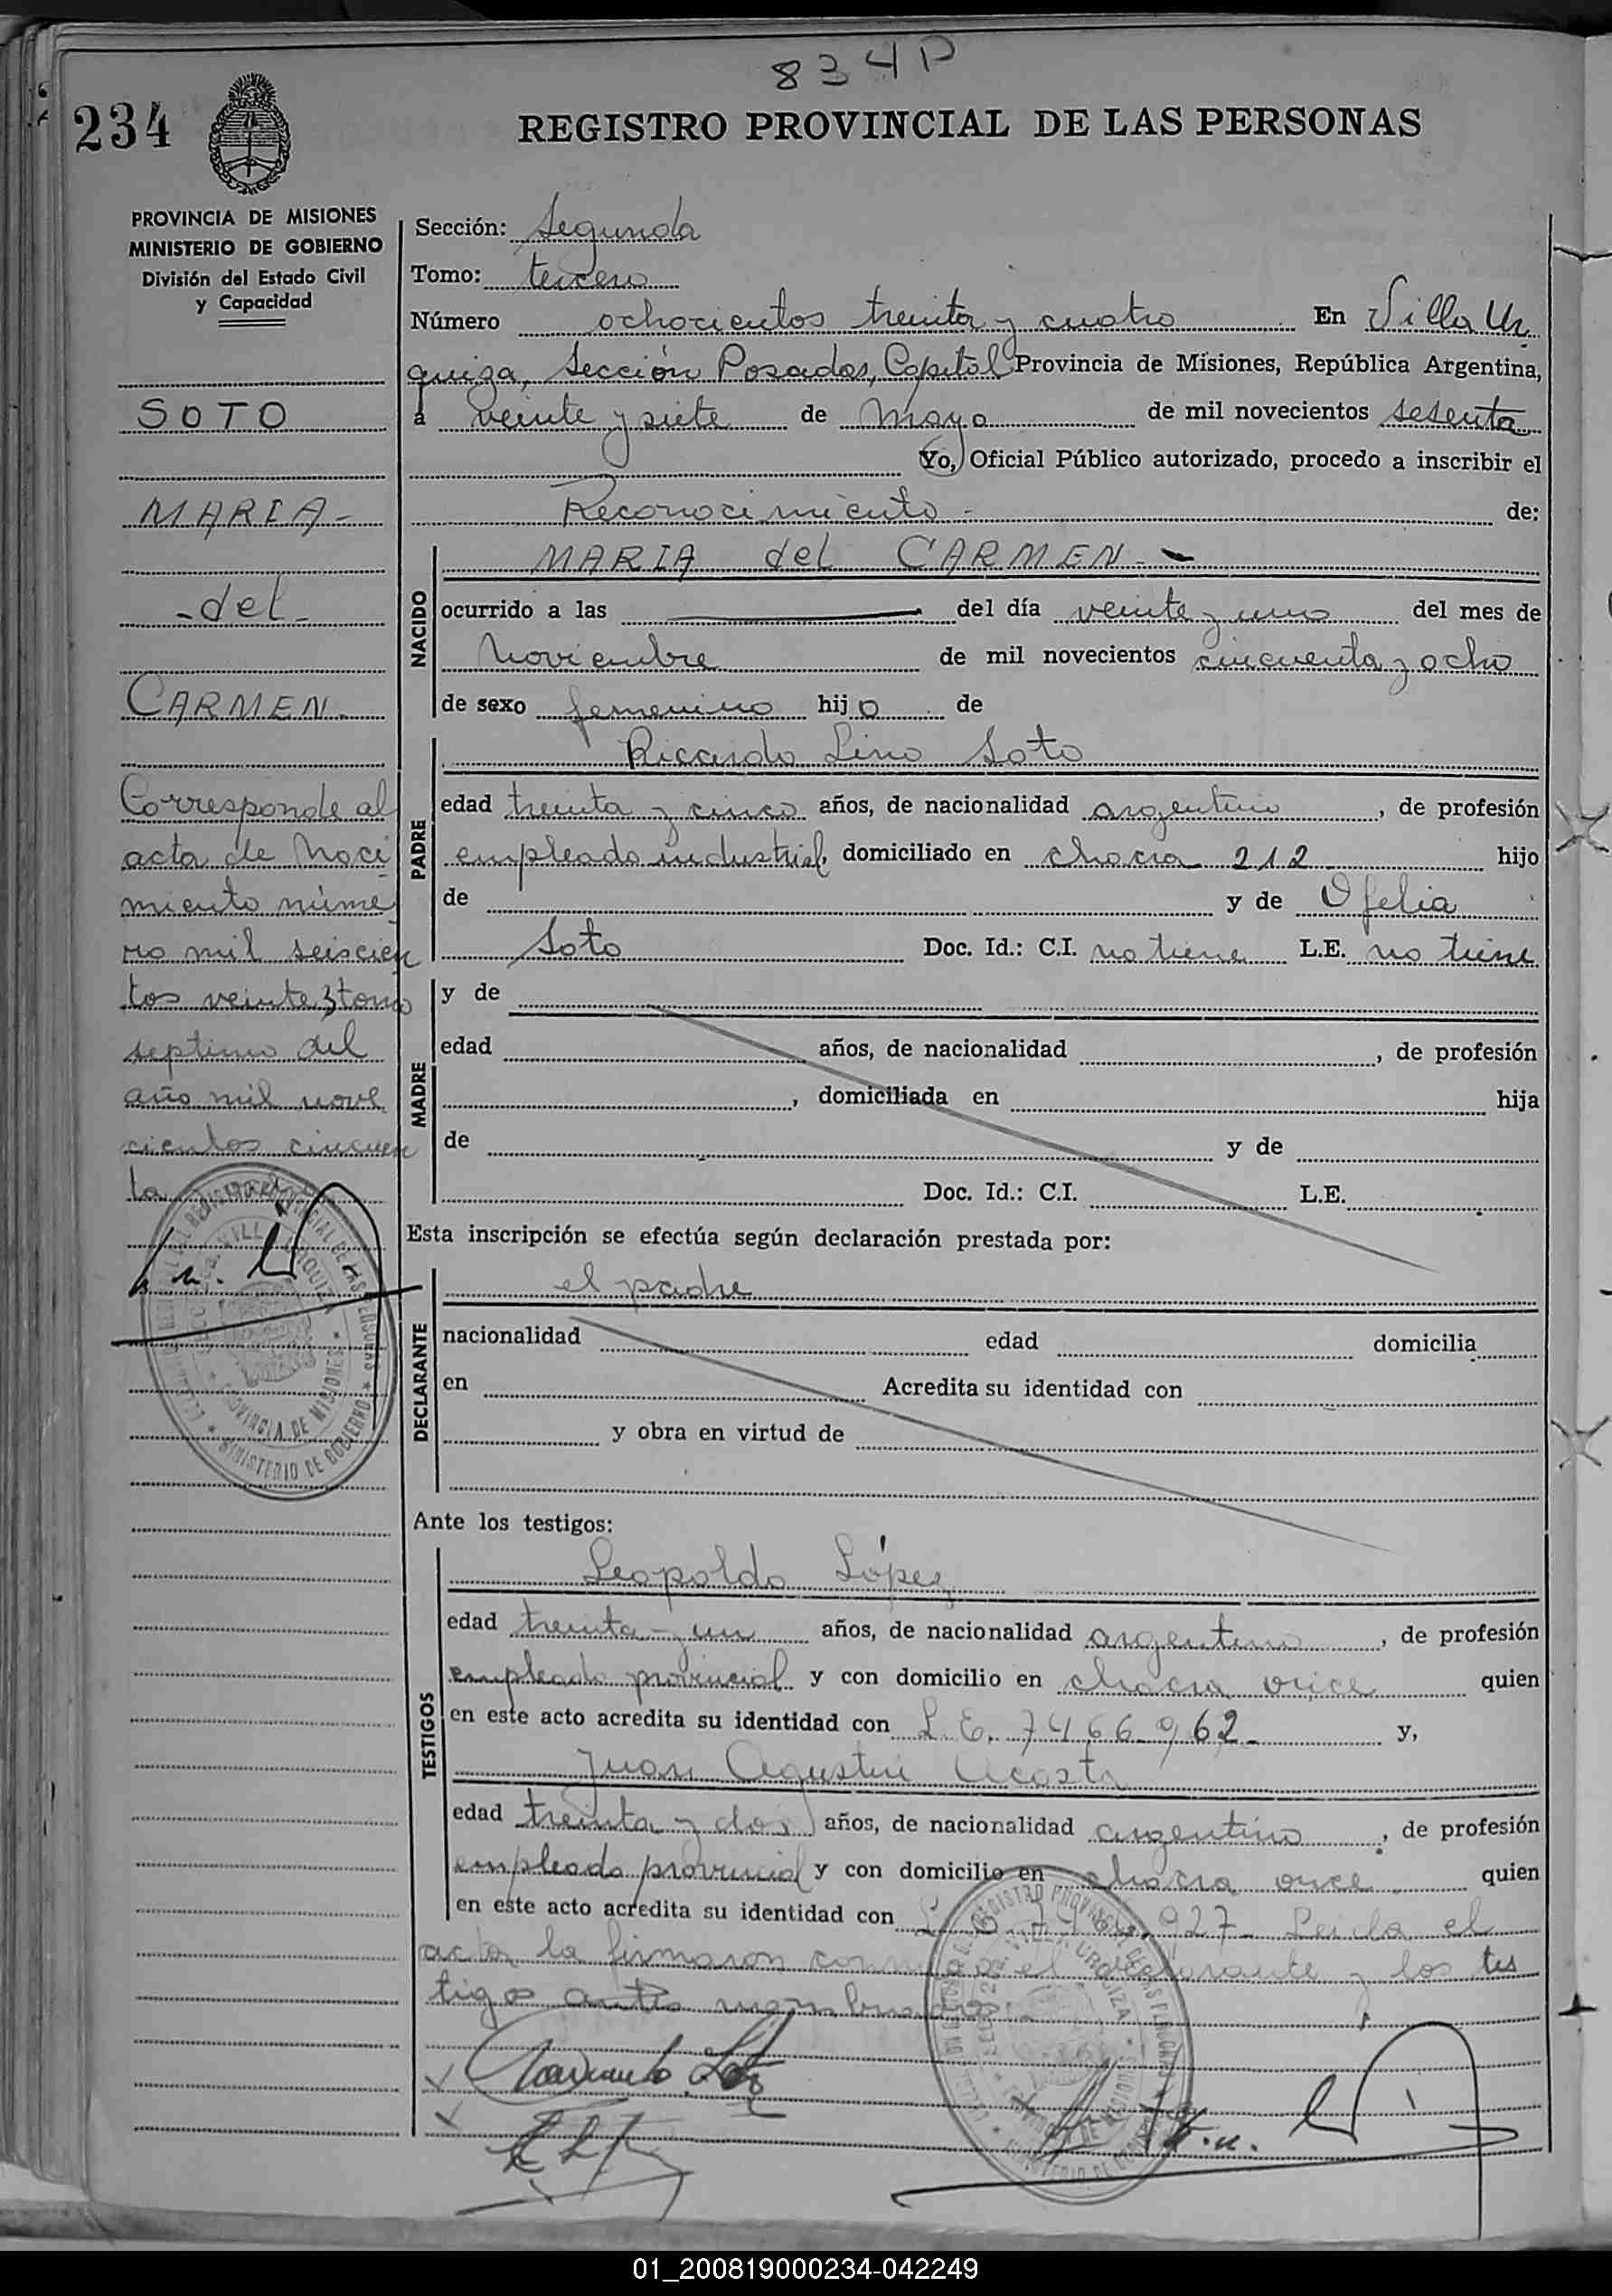 834P
234
REGISTRO PROVINCIAL DE LAS PERSONAS
PROVINCIA DE MISIONES
MINISTERIO DE GOBIERNO
División del Estado Civil
y Capacidad
SOTO
MARIA-
-del-
CARMEN-
Corresponde al
acta de Naci
miento núme
ro mil seiscien
tos veinte tomo
septimo del
año mil nove
cientos cincuen
ta
Sección: Segunda
Tomo: tercero
Número ochocientos treinta y cuatro En Villa Ur
quiza, Sección Posadas, Capital Provincia de Misiones, República Argentina,
a veinte y siete de Mayo de mil novecientos sesenta
Yo, Oficial Público autorizado, procedo a inscribir el
Reconocimiento - de:
NACIDO
MARIA del CARMEN -
ocurrido a las del día veinte y uno del mes de
Noviembre de mil novecientos cincuenta y ocho
de sexo femenino hijo de
PADRE
Ricardo Lino Soto
edad treinta y cinco años, de nacionalidad argentino, de profesión
empleado industrial, domiciliado en chacra 212 hijo
de y de Ofelia
Soto Doc. Id.: C.I. no tiene L.E. no tiene
MADRE
y de
edad años, de nacionalidad , de profesión
, domiciliada en hija
de y de
Doc. Id.: C.I. L.E.
Esta inscripción se efectúa según declaración prestada por:
DECLARANTE
el padre
nacionalidad edad domicilia
en Acredita su identidad con
y obra en virtud de
Ante los testigos:
TESTIGOS
Leopoldo López
edad treinta y un años, de nacionalidad argentino, de profesión
empleado provincial y con domicilio en chacra once quien
en este acto acredita su identidad con L.E. 7466962- y,
Juan Agustin Acosta
edad treinta y dos años, de nacionalidad argentino, de profesión
empleado provincial y con domicilio en chacra once quien
en este acto acredita su identidad con 927- Leida el
acta la firmaron conmigo el declarante y los tes
tigos antes nombrados
MINISTERIO DE GOBIERNO
PROVINCIA DE MISIONES
01_200819000234-042249